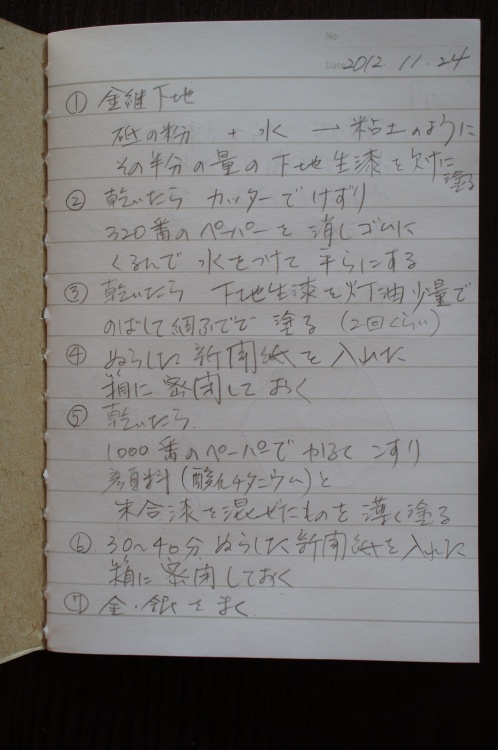 No.
Date 2012. 11. 24
① 金継下地
砥の粉 + 水 → 粘土のように
その半分の量の下地生漆を欠けに塗る
② 乾いたら カッターでけずり
320番のペーパーを消しゴムに
くるんで 水をつけて 平らにする
③ 乾いたら 下地生漆を灯油少量で
のばして細ふでで 塗る (2回くらい)
④ ぬらした新聞紙を入れた
箱に密閉しておく
⑤ 乾いたら
1000番のペーパーでかるくこすり
顔料(酸化チタニウム)と
本合漆を混ぜたものを薄く塗る
⑥ 30〜40分 ぬらした新聞紙を入れた
箱に密閉しておく
⑦ 金・銀をまく